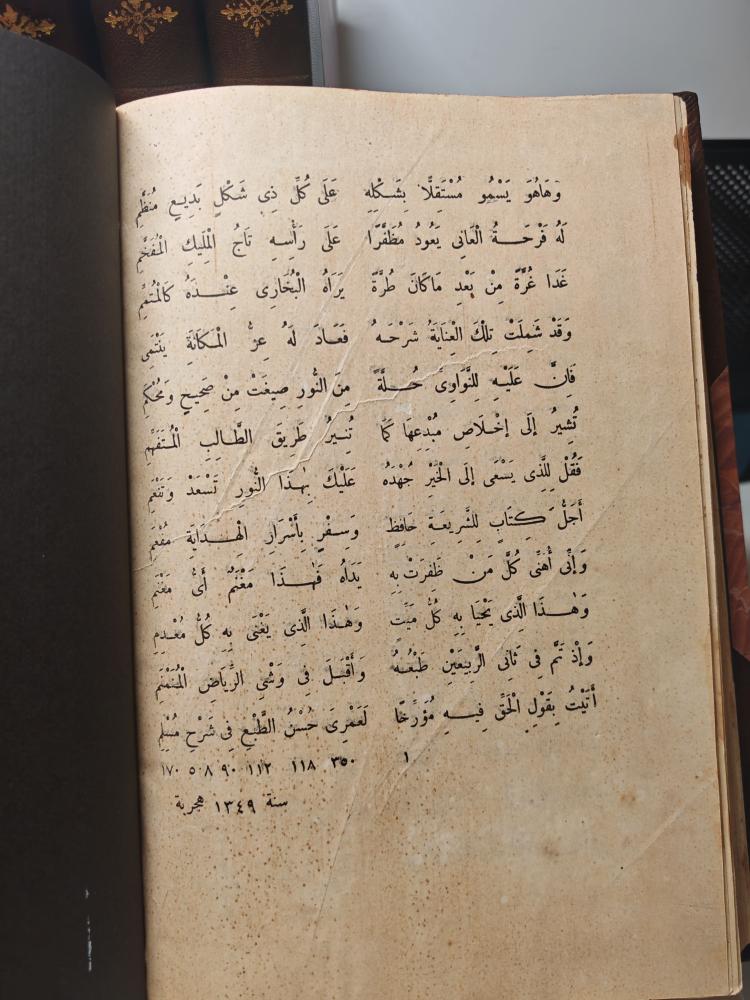 وَهَاهُوَ يَسْمُو مُسْتَقِلًّا بِشَكْلِهِ عَلَى كُلِّ ذِى شَكْلٍ بَدِيعٍ مُنَظَّمِ
لَهُ فَرْحَةُ الْعَانِى يَعُودُ مُظَفَّرًا عَلَى رَأْسِهِ تَاجُ الْمَلِيكِ الْمُفَخَّمِ
غَدَا غُرَّةً مِنْ بَعْدِ مَاكَانَ طُرَّةً يَرَاهُ الْبُخَارِى عِنْدَهُ كَالْمُتَمِّمِ
وَقَدْ شَمِلَتْ تِلْكَ الْعِنَايَةُ شَرْحَهُ فَعَادَ لَهُ عِزُّ الْمَكَانَةِ يَنْتَمِى
فَإِنَّ عَلَيْهِ لِلنَّوَاوِىِّ حُلَّةً مِنَ النُّورِ صِيغَتْ مِنْ صَحِيحٍ وَمُحْكَمِ
تُشِيرُ إِلَى إِخْلَاصِ مُبْدِعِهَا كَمَا تُنِيرُ طَرِيقَ الطَّالِبِ الْمُتَفَهِّمِ
فَقُلْ لِلَّذِى يَسْعَى إِلَى الْخَيْرِ جُهْدَهُ عَلَيْكَ بِهٰذَا النُّورِ تَسْعَدْ وَتَنْعَمِ
أَجَلُّ كِتَابٍ لِلشَّرِيعَةِ حَافِظٍ وَسِفْرٍ بِأَسْرَارِ الْهِدَايَةِ مُفْعَمِ
وَإِنِّى أُهَنِّى كُلَّ مَنْ ظَفِرَتْ بِهِ يَدَاهُ فَهٰذَا مَغْنَمٌ أَىُّ مَغْنَمِ
وَهٰذَا الَّذِى يَحْيَا بِهِ كُلُّ مَيِّتٍ وَهٰذَا الَّذِى يَغْنَى بِهِ كُلُّ مُعْدِمِ
وَإِذْ تَمَّ فِى ثَانِى الرَّبِيعَيْنِ طَبْعُهُ وَأَقْبَلَ فِى وَشْىِ الرِّيَاضِ الْمُنَمْنَمِ
أَتَيْتُ بِقَوْلِ الْحَقِّ فِيهِ مُؤَرِّخًا لَعَمْرِىَ حُسْنُ الطَّبْعِ فِى شَرْحِ مُسْلِمِ
١ ٣٥٠ ١١٨ ١١٢ ٩٠ ٥٠٨ ١٧٠
سنة ١٣٤٩ هجرية